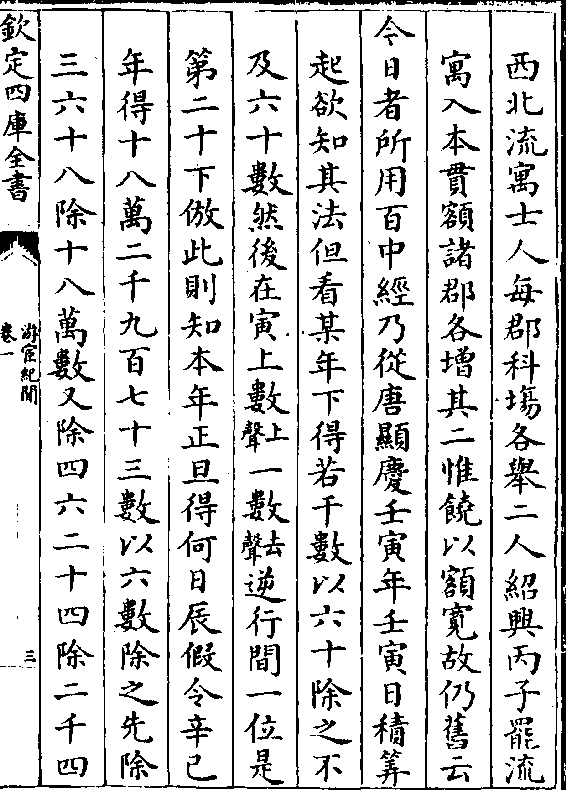 西北流寓士人每郡科塲各舉二人紹興丙子罷流
寓入本貫額諸郡各增其二惟饒以額寛故仍舊云
今日者所用百中經乃從唐顯慶壬寅年壬寅日積筭
起欲知其法但看某年下得若干數以六十除之不
及六十數然後在寅上數上聲一數去聲逆行間一位是
第二十下倣此則知本年正旦得何日辰假令辛已
年得十八萬二千九百七十三數以六數除之先除
三六十八除十八萬數又除四六二十四除二千四
欽定四庫全書
游宦紀聞
卷一
三